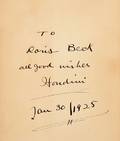 To
Doris Beck
all good wishes
Houdini
Jan 30/1925